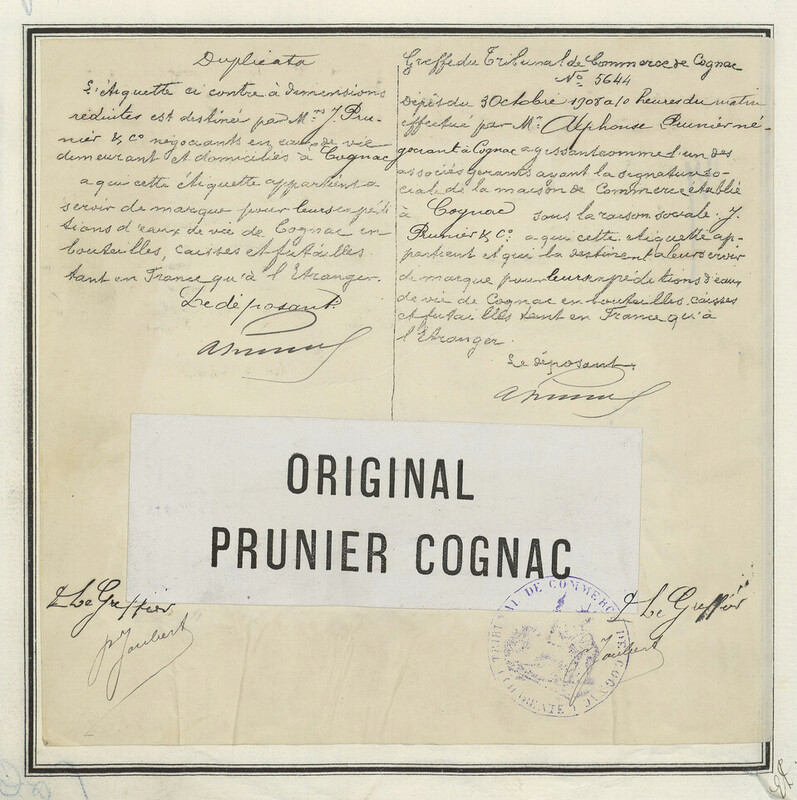 Duplicata
L'étiquette ci contre à dimensions
réduites est destinée par Mrs J. Pru-
nier & Co négociants en eaux de vie
demeurant et domiciliés à Cognac
a qui cette étiquette appartient a
servir de marque pour leurs expédi-
tions d'eaux de vie de Cognac en
bouteilles, caisses et futailles
tant en France qu'à l'Etranger.
Le déposant.
Greffe du Tribunal de Commerce de Cognac
No 5644
Dépôt du 3 Octobre 1908 a 10 heures du matin
effectué par Mr. Alphonse Prunier né-
gociant à Cognac agissant comme l'un des
associés gerants ayant la signature so-
ciale de la maison de Commerce établie
à Cognac sous la raison sociale. J.
Prunier & Co. a qui cette etiquette ap-
partient et qui la destinent a leur servir
de marque pour leurs expéditions d'eaux
de vie de Cognac en bouteilles, caisses
et futailles tant en France qu'à
l'Etranger.
Le déposant.
ORIGINAL
PRUNIER COGNAC
Le Greffier
Joubert
Le Greffier
Joubert
TRIBUNAL DE COMMERCE DE COGNAC
CHARENTE